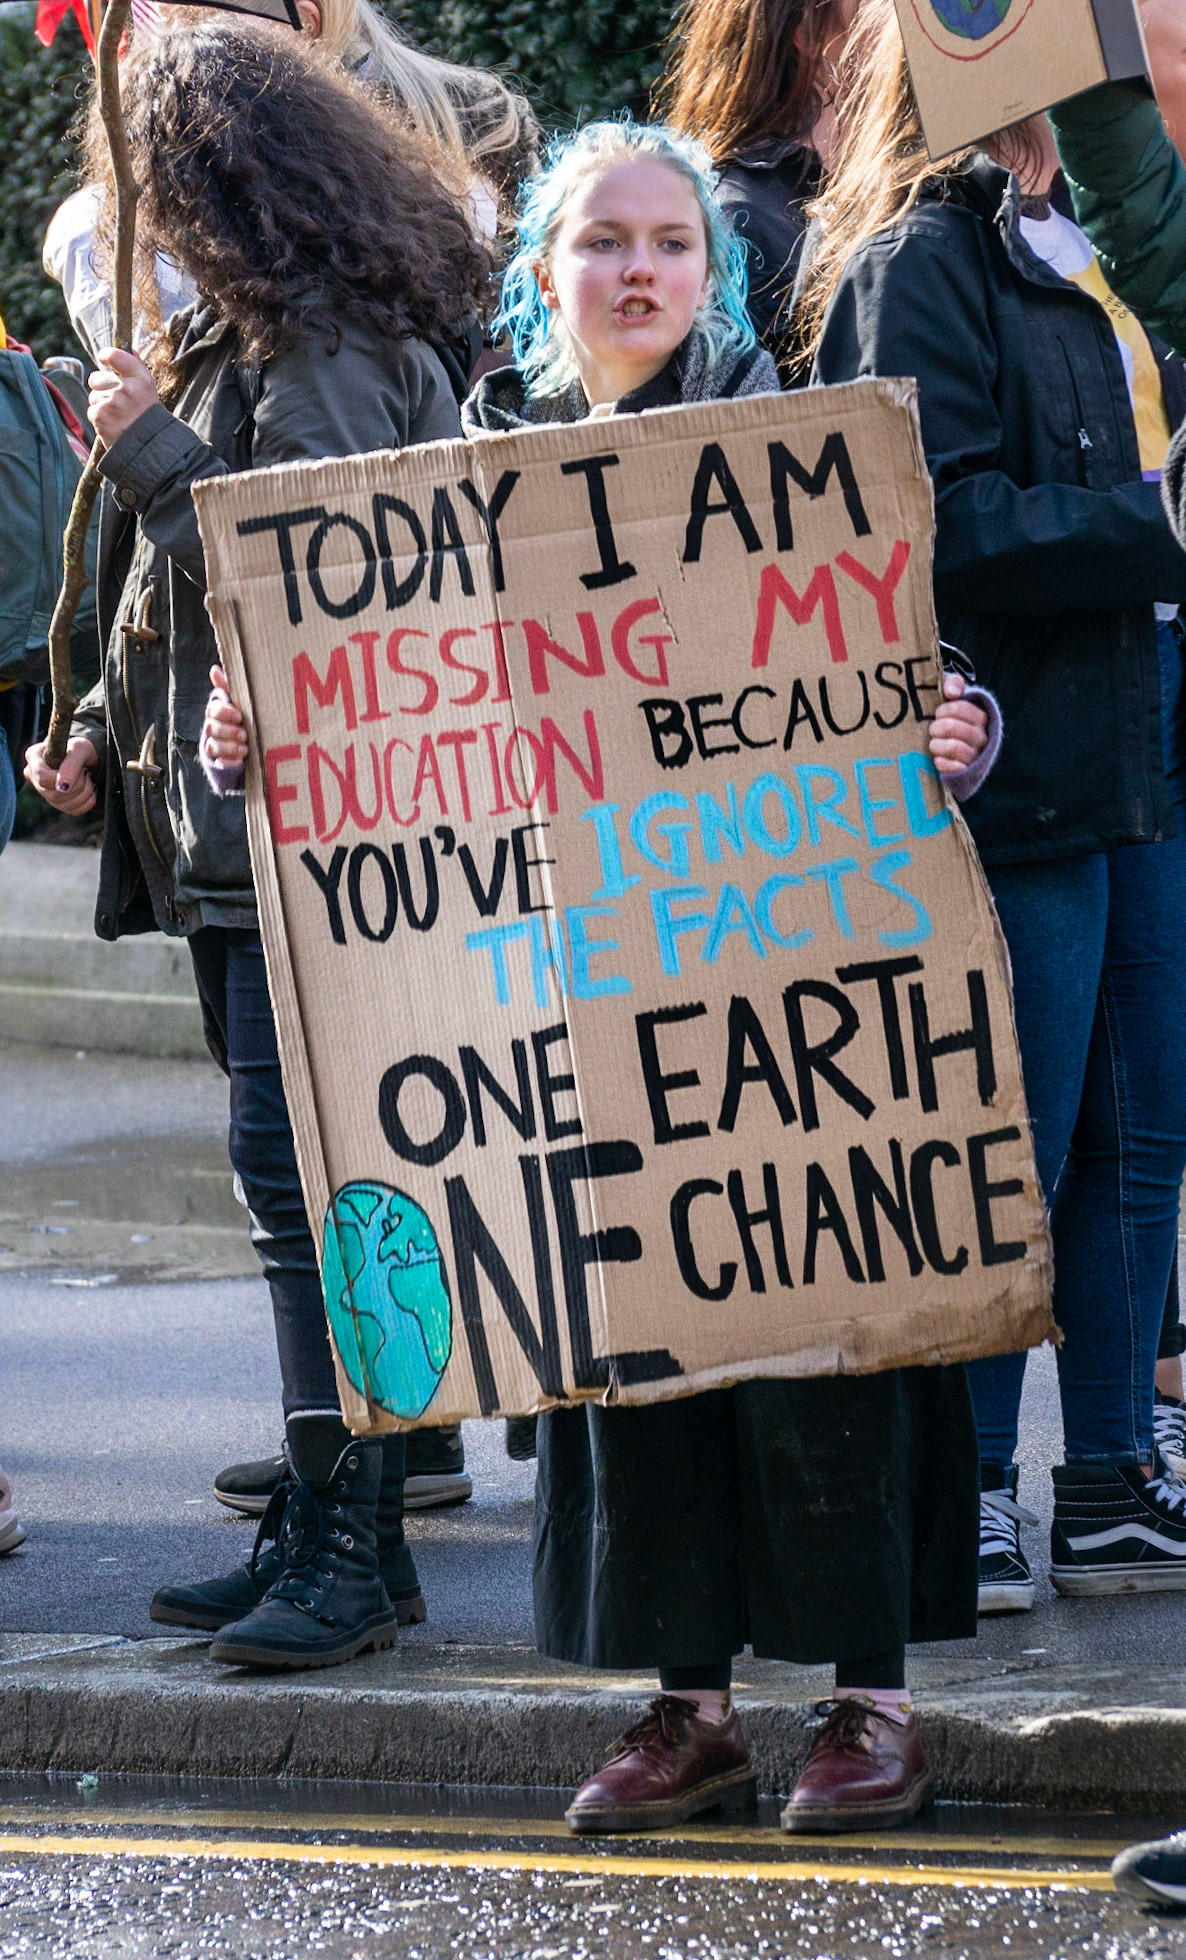 TODAY I AM
MISSING MY
EDUCATION BECAUSE
YOU'VE IGNORED
THE FACTS
ONE EARTH
ONE CHANCE